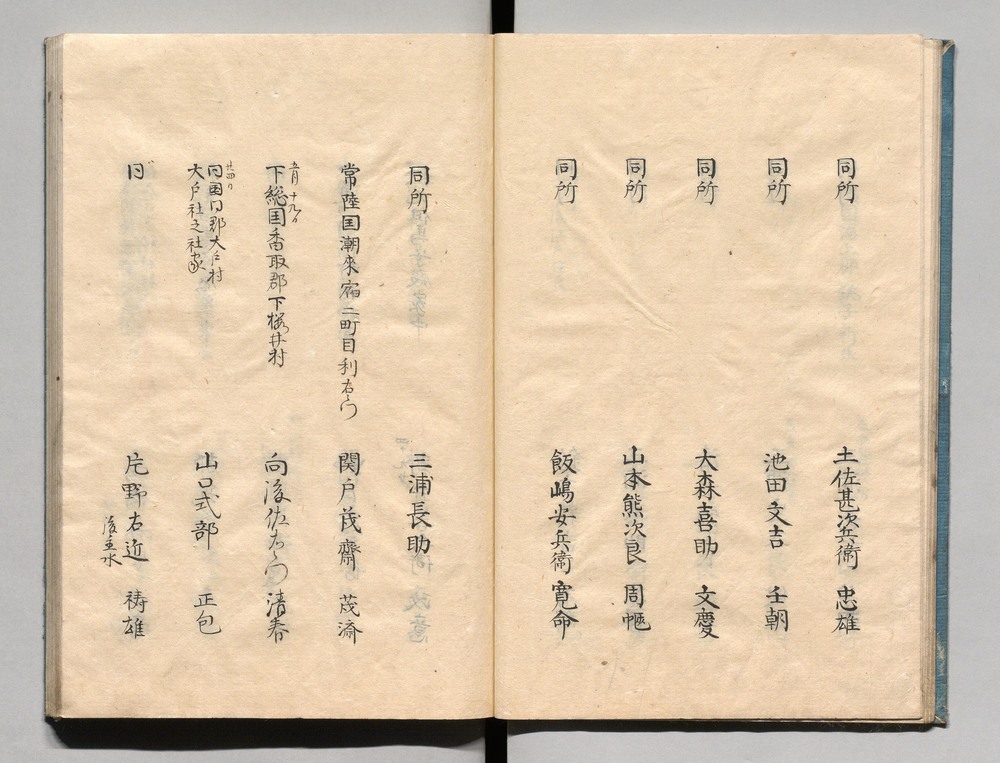 同所 土佐甚次兵衛 忠雄
同所 池田文吉 壬朝
同所 大森喜助 文慶
同所 山本熊次良 周
同所 飯嶋安兵衛 寛命
同所 三浦長助
常陸国潮来宿二町目利右衛門 関戸茂齋 茂済
五月十九日
下総国香取郡下桜井村 向後佐右衛門 清春
廿四日
同国同郡大戸村
大戸社之社家 山口式部 正包
同 片野右近 祷雄
後主水